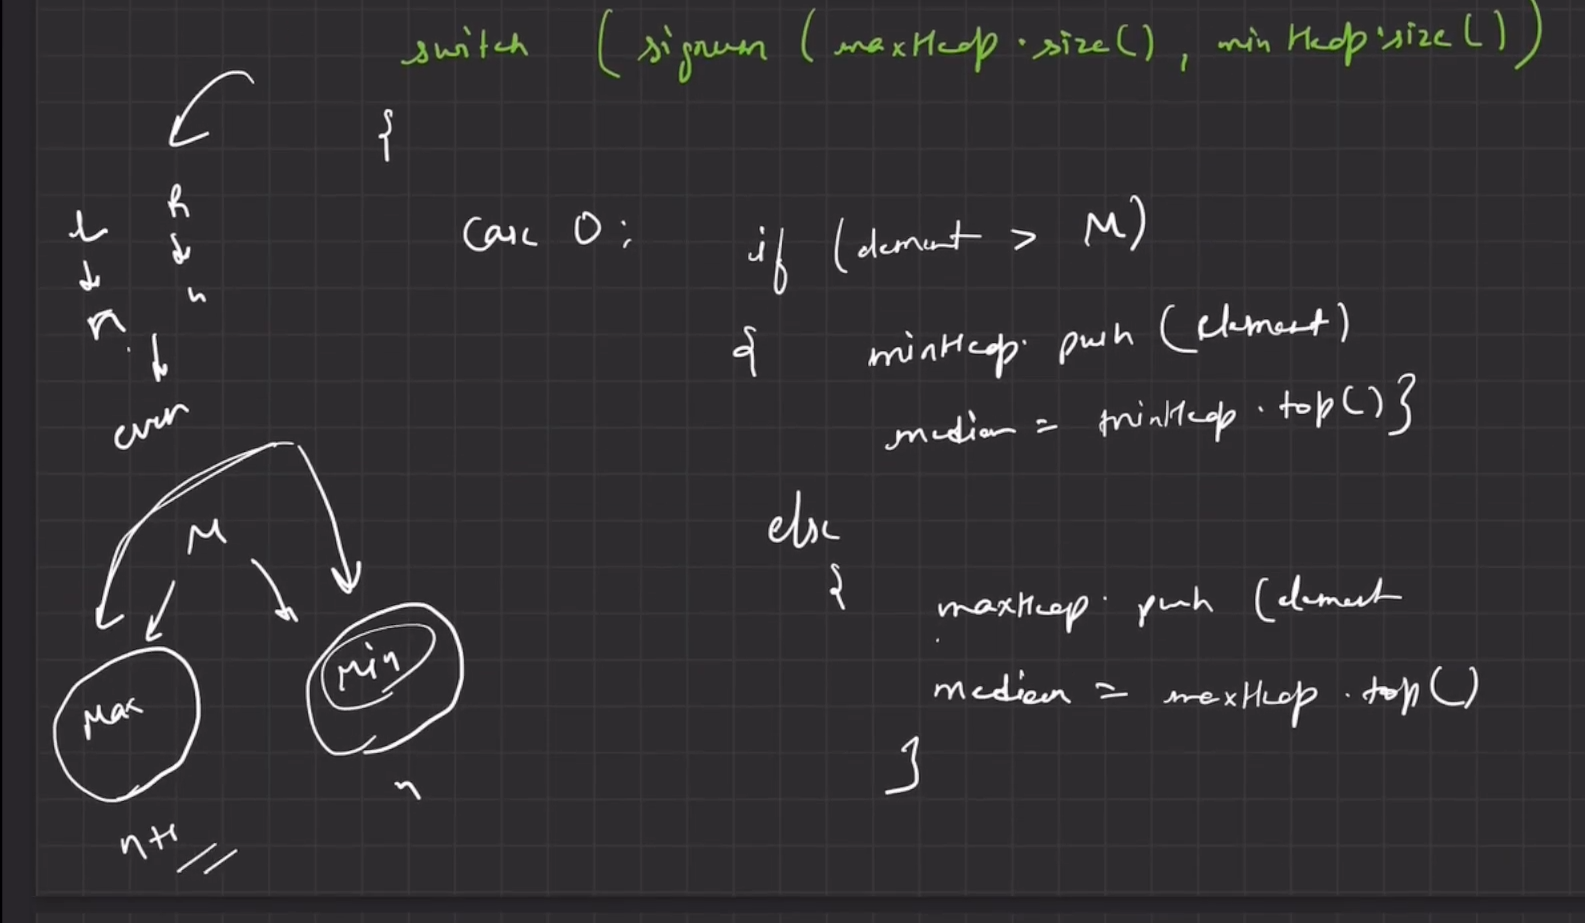 switch (signum (maxHeap.size(), minHeap.size())
{
Case 0: if (element > M)
{ minHeap.push (element)
median = minHeap.top()}
else
{
maxHeap.push (element
median = maxHeap.top()
}
L R
n n
even
M
Max Min
n+1 n